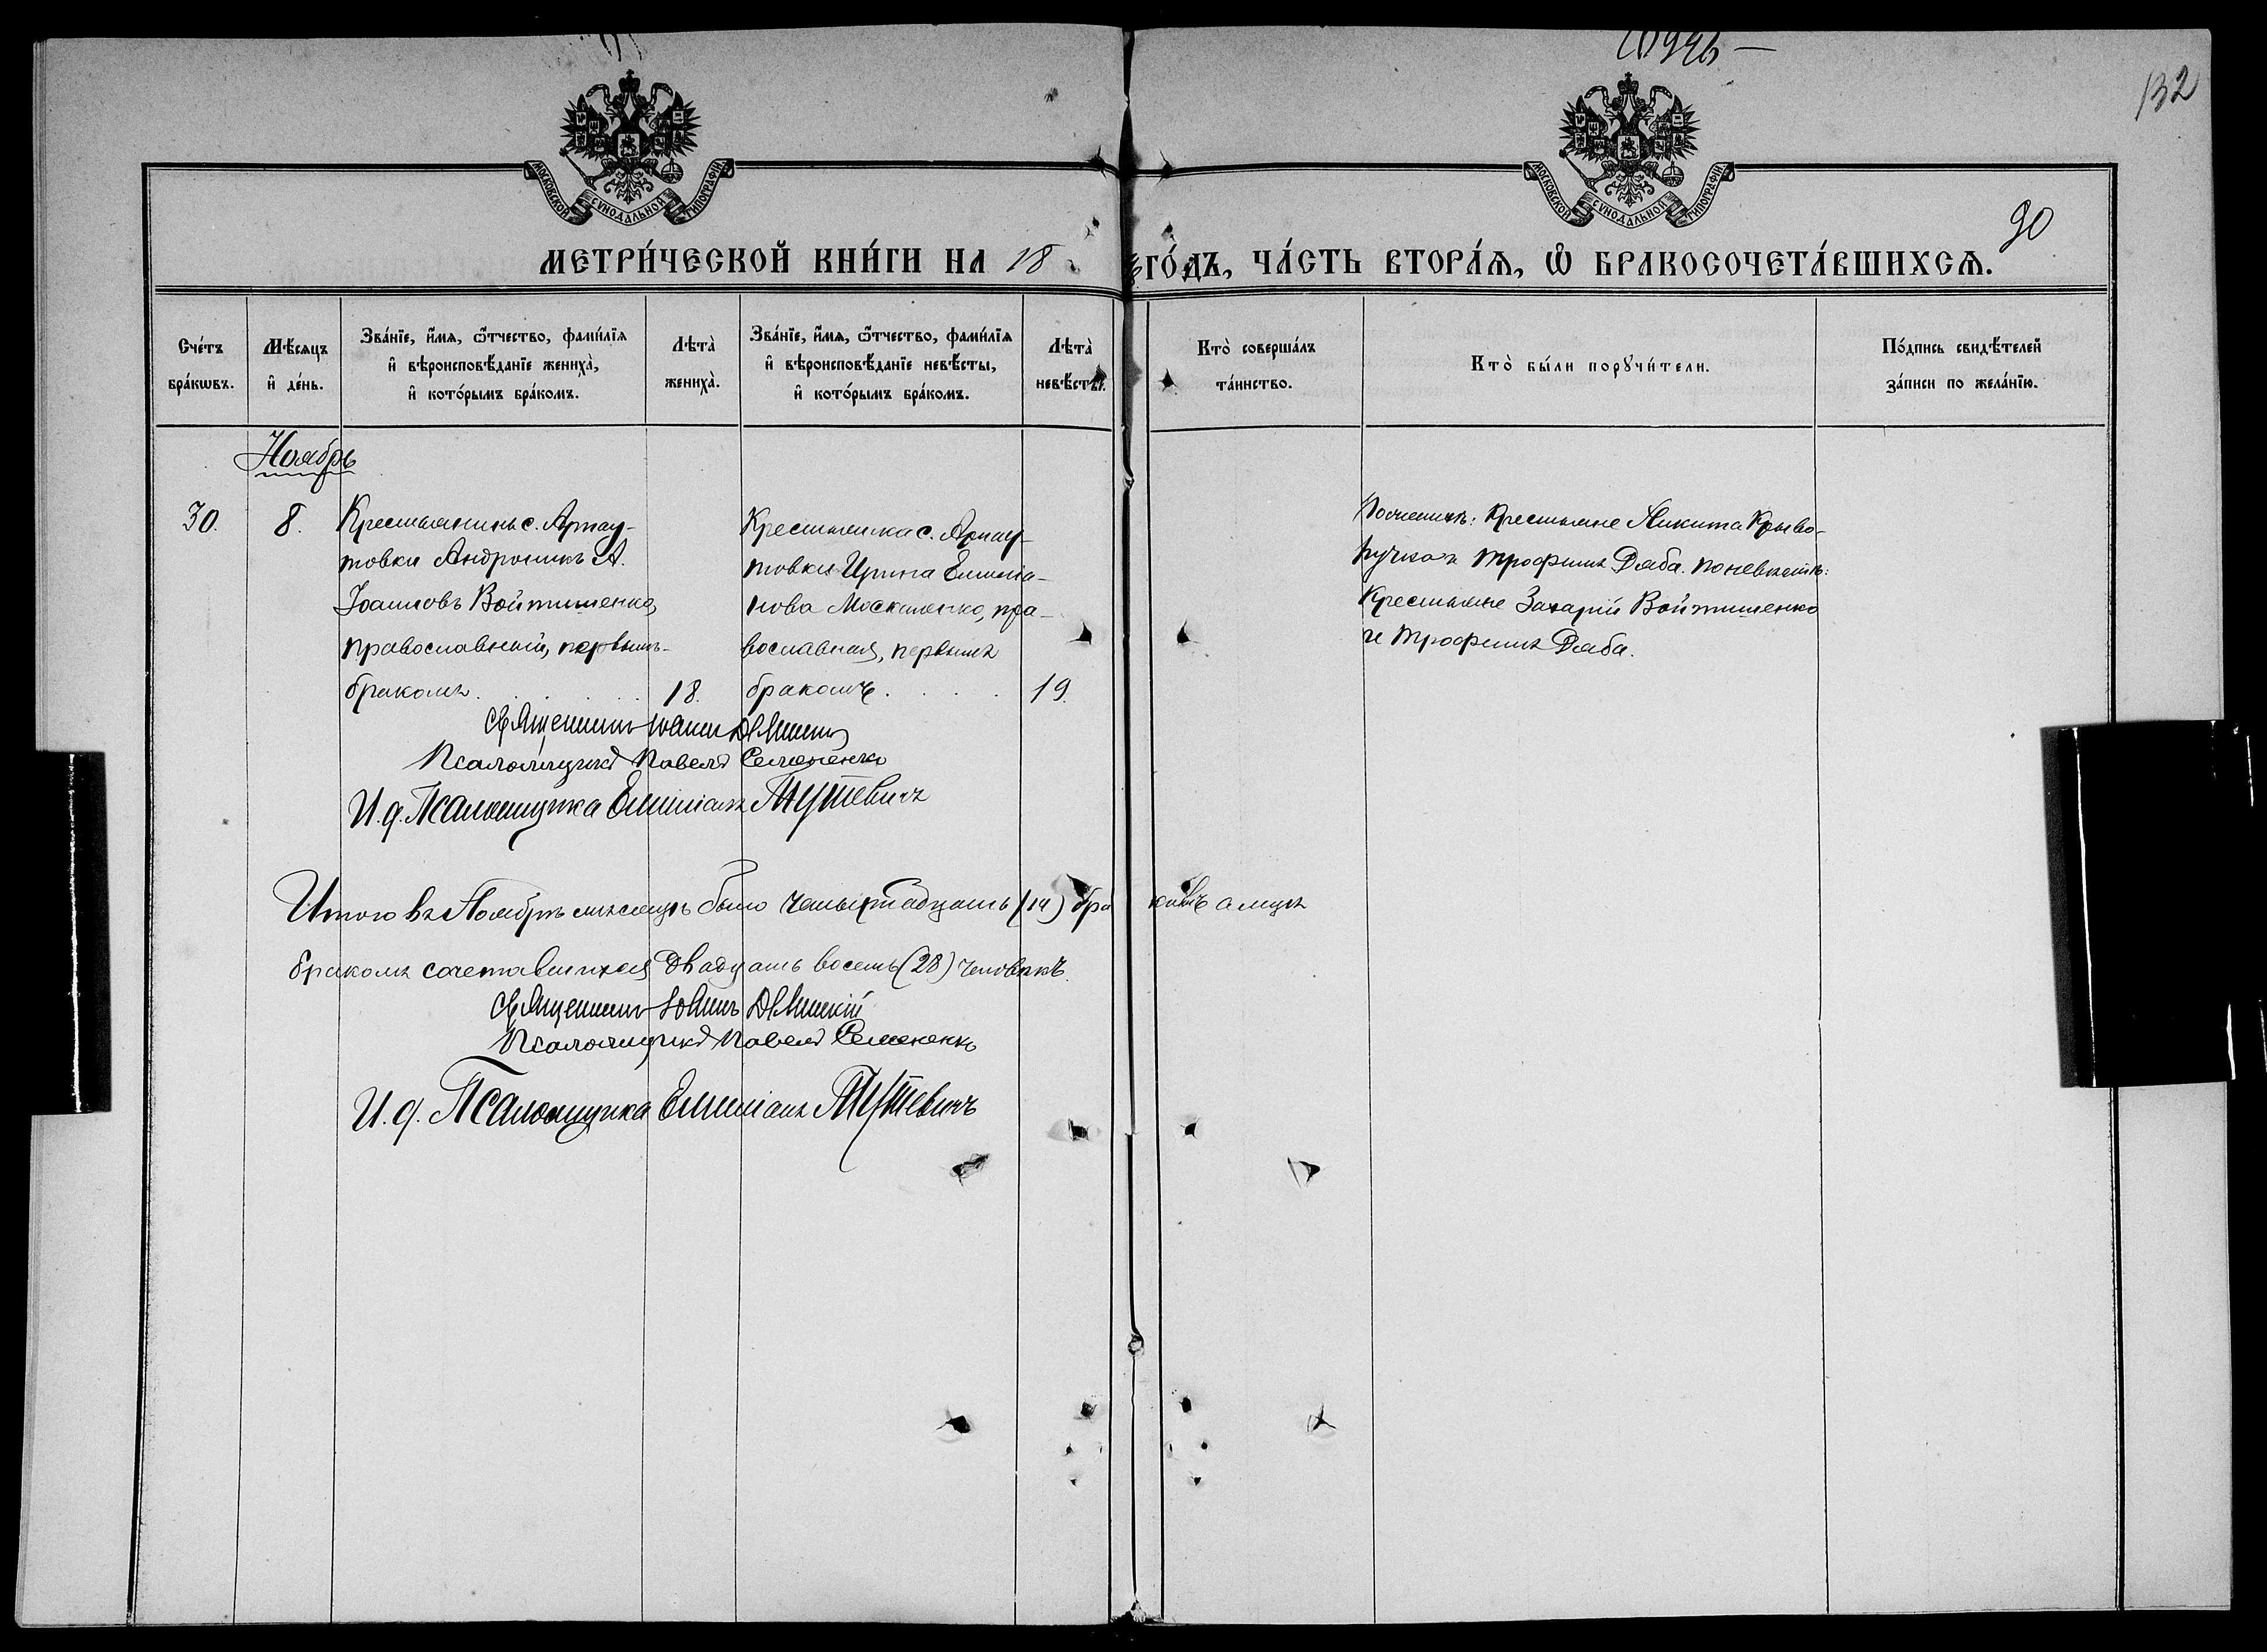 132
МОСКОВСКОЙ СѴНОДАЛЬНОЙ ТИПОГРАФІИ.
МОСКОВСКОЙ СѴНОДАЛЬНОЙ ТИПОГРАФІИ.
90
МЕТРИ́ЧЕСКОЙ КНИ́ГИ НА 18 ГО́ДЪ, ЧА́СТЬ ВТОРА́Ѧ, Ѡ҆ БРАКОСОЧЕТА́ВШИХСѦ.
Сче́тъ
бра́кѡвъ.
Мѣ́сѧцъ
и҆ де́нь.
Зва́нїе, и҆́мѧ, ѻ҆́тчество, фами́лїѧ
и҆ вѣроисповѣ́данїе женихà,
и҆ кото́рымъ бра́комъ.
Лѣтà
женихà.
Зва́нїе, и҆́мѧ, ѻ҆́тчество, фами́лїѧ
и҆ вѣроисповѣ́данїе невѣ́сты,
и҆ кото́рымъ бра́комъ.
Лѣтà
невѣ́сты.
Ктò соверша́лъ
та́инство.
Ктò бы́ли порꙋчи́тели.
По́дпись свидѣ́телей
за́писи по жела́нїю.
Ноябрь
30.
8.
Крестьянинъ с. Арнау-
товки Андроникъ А.
Іоанновъ Войтишенко,
православный, первымъ
бракомъ
18.
Крестьянка с. Арнау-
товки Ирина Емилiа-
нова Москаленко, пра-
вославная, первымъ
бракомъ
19.
По женихѣ: Крестьяне Никита Криво-
ручко и Трофимъ Дяба. по невѣстѣ:
Крестьяне Захарій Войтишенко
и Трофимъ Дяба.
Священникъ Іоаннъ
Псаломщикъ Павелъ Семененко
И. д. Псаломщика Емиліанъ
Итого въ Ноябрѣ мѣсяцѣ было четырнадцать (14) браковъ а лицъ
бракомъ сочетавшихся двадцать восемь (28) человѣкъ.
Священникъ Іоаннъ
Псаломщикъ Павелъ Семененко
И. д. Псаломщика Емиліанъ